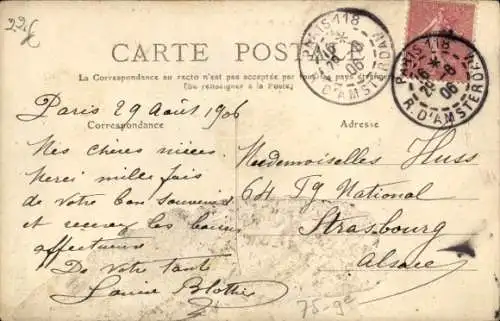 22f
CARTE POSTALE
La Correspondance au recto n'est pas acceptée par tous les pays étrangers
(Se renseigner à la Poste)
PARIS 118
R. D'AMSTERDAM
29 8 06
PARIS 118
R. D'AMSTERDAM
29 8 06
Paris 29 Août 1906
Correspondance
Mes chères nièces
Merci mille fois
de votre bon souvenir
et recevez les baisers
affectueux
De votre tante
Louise
Adresse
Mesdemoiselles Huss
64 Fg National
Strasbourg
Alsace
75-9e